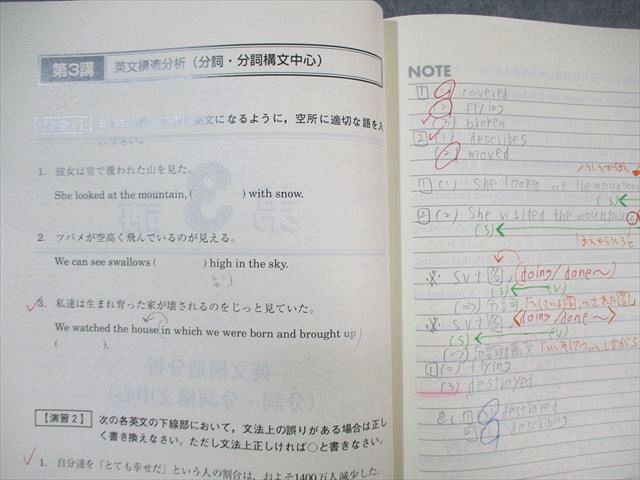 第3講 英文構造分析（分詞・分詞構文中心）
になるように，空所に適切な語を入
なさい。
1. 彼女は雪で覆われた山を見た。
She looked at the mountain, ( ) with snow.
2. ツバメが空高く飛んでいるのが見える。
We can see swallows ( ) high in the sky.
3. 私達は生まれ育った家が壊されるのをじっと見ていた。
We watched the house in which we were born and brought up
( ).
英文構造分析
（分詞・分詞構文中心）
【演習2】 次の各英文の下線部において，文法上の誤りがある場合は正し
く書き換えなさい。ただし文法上正しければ○と書きなさい。
1. 自分達を「とても幸せだ」という人の割合は，およそ1400万人減少した。
NOTE
1 (1) covered
(2) flying
(3) broken
2 (1) describes
(2) moved
1 (1) She looked at the mountain
(S)
2 (2) She visited the mountain
(S)
※ SVt 名, (doing/done~)
(S) (V)
(⇒) 分詞
※ SVt 名, <doing/done~>
(S) (V)
(⇒) 分詞構文
(2) flying
(3) destroyed
destroyed
describing